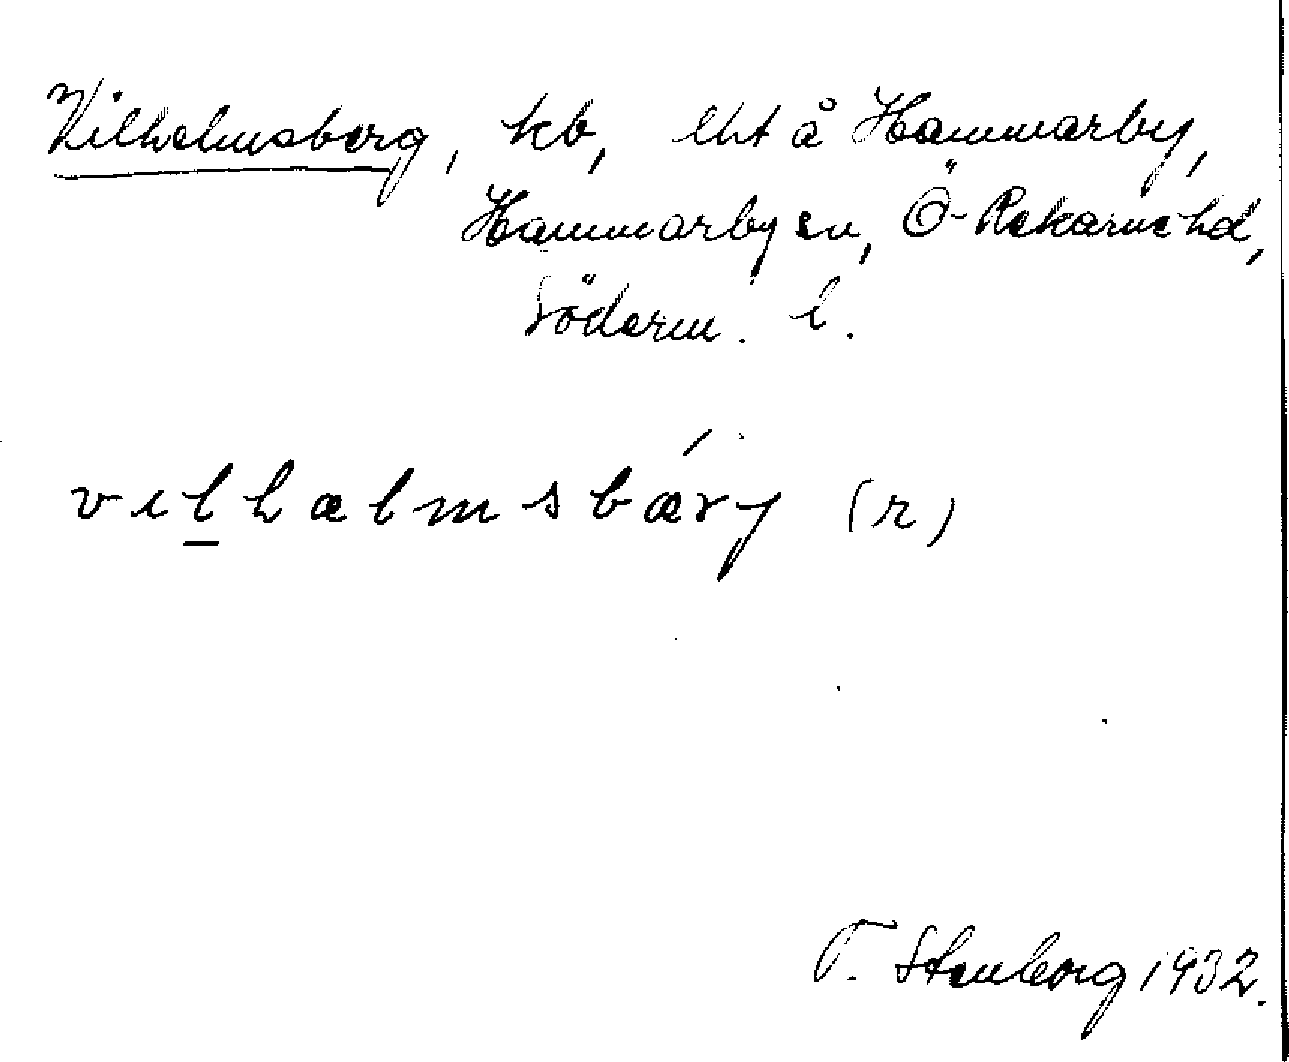 Vilhelmsberg, kb, lht å Hammarby,
Hammarby sn, Ö-Rekarne hd,
Söderm. l.
vilhælmsbærj (r)
T. Stenberg 1932.